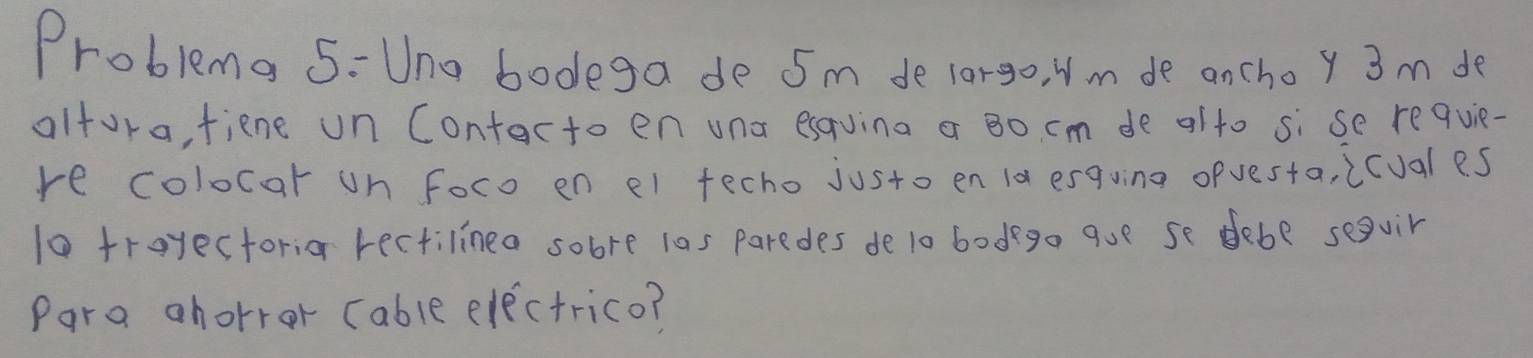 Problema 5.- Una bodega de 5m de largo, 4m de ancho y 3m de
altura, tiene un contacto en una esquina a 80 cm de alto si se requie-
re colocar un foco en el techo justo en la esquina opuesta, ¿cual es
la trayectoria rectilínea sobre las paredes de la bodega que se debe seguir
para ahorrar cable eléctrico?